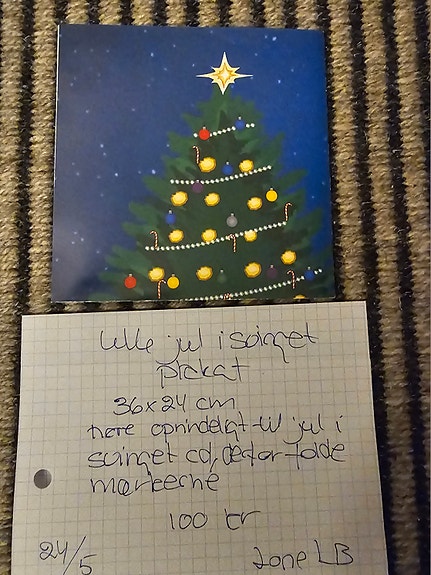 Lille jul i svinget
plakat
36x24 cm
høre oprindeligt til jul i
svinget cd, derfor folde
mærkerne
100 kr
24/5
Lone LB